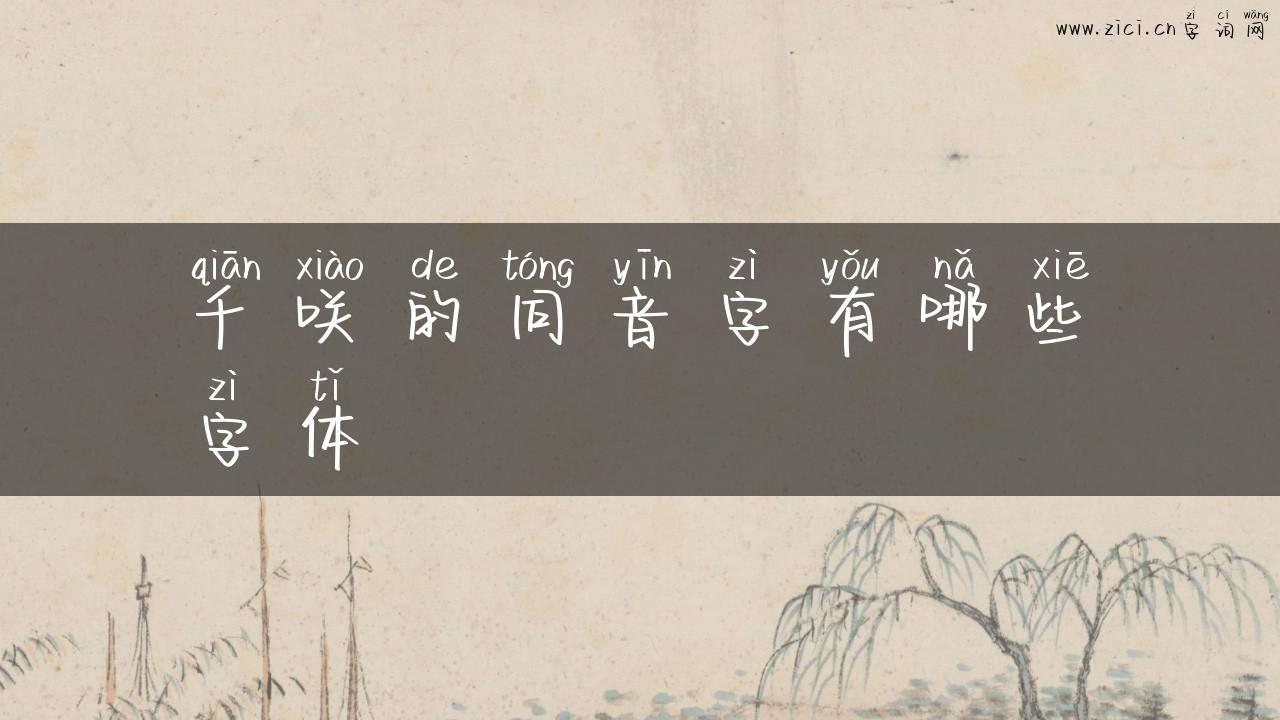 zì cí wǎng
www.zici.cn 字 词 网
qiān xiào de tóng yīn zì yǒu nǎ xiē
千 咲 的 同 音 字 有 哪 些
zì tǐ
字 体